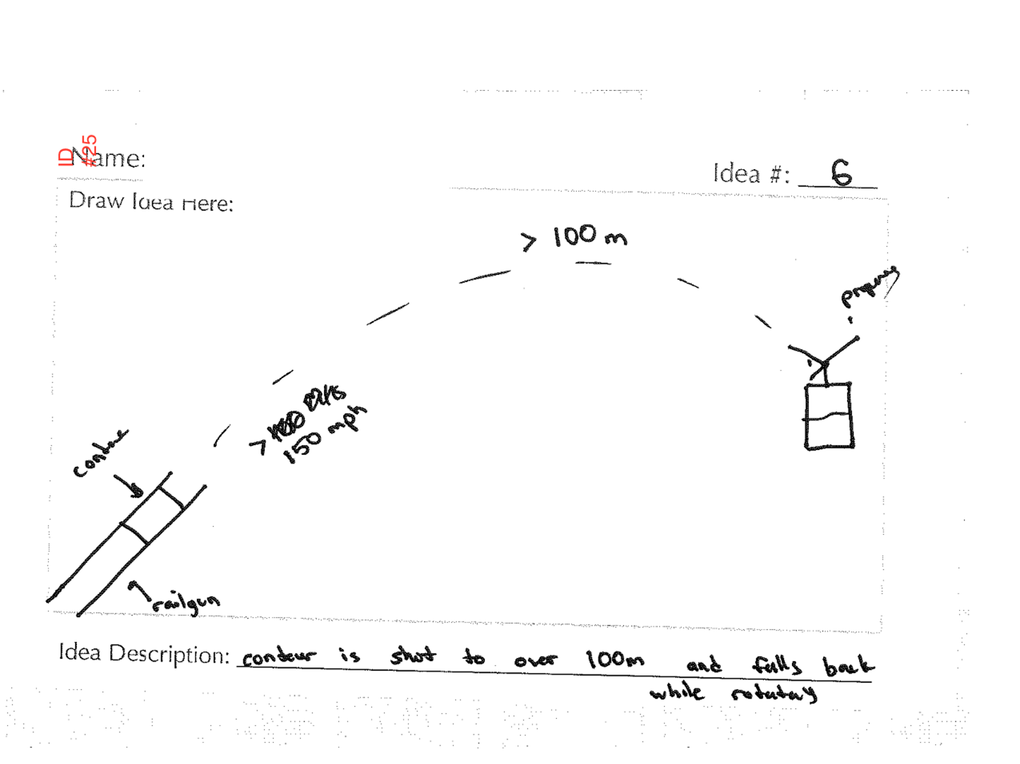 ID
#25
Name:
Idea #: 6
Draw Idea Here:
> 100 m
>
150 mph
railgun
Idea Description: contour is shot to over 100m and falls back
while rotatary